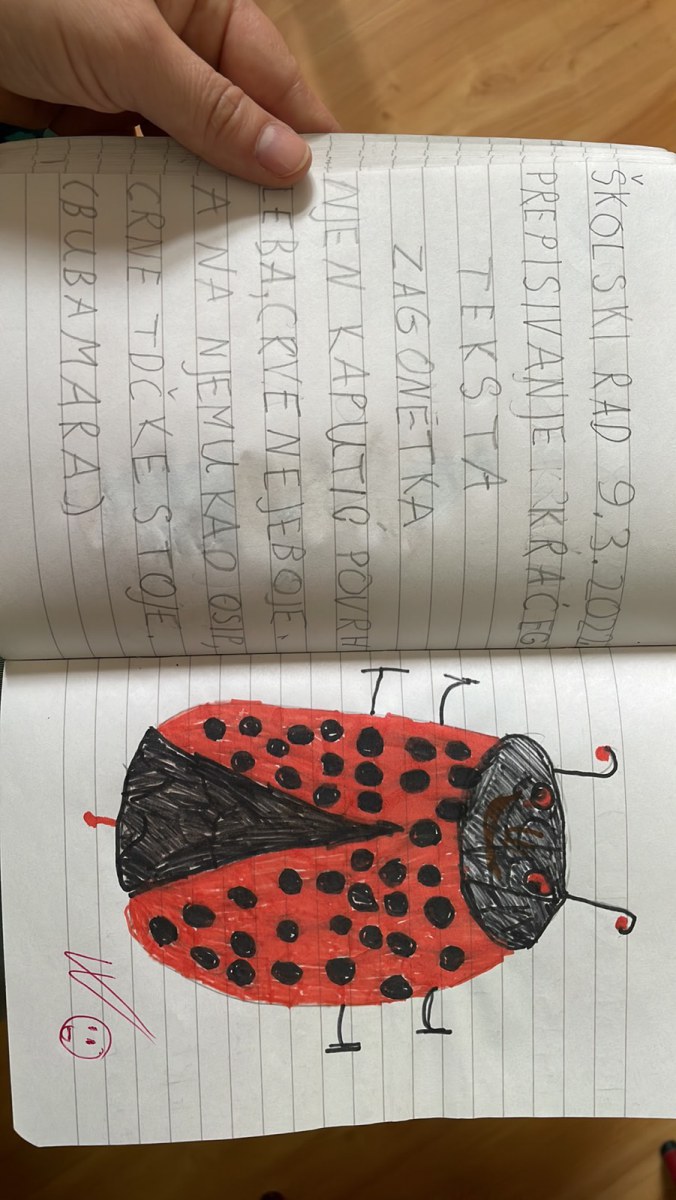 ŠKOLSKI RAD 9.3.2022
PREPISIVANJE KRAĆEG
TEKSTA
ZAGONETKA
NJEN KAPUTIĆ POVRH
LEBA, CRVENE JE BOJE.
A NA NJEMU KAO OSIP,
CRNE TOČKE STOJE.
(BUBAMARA)